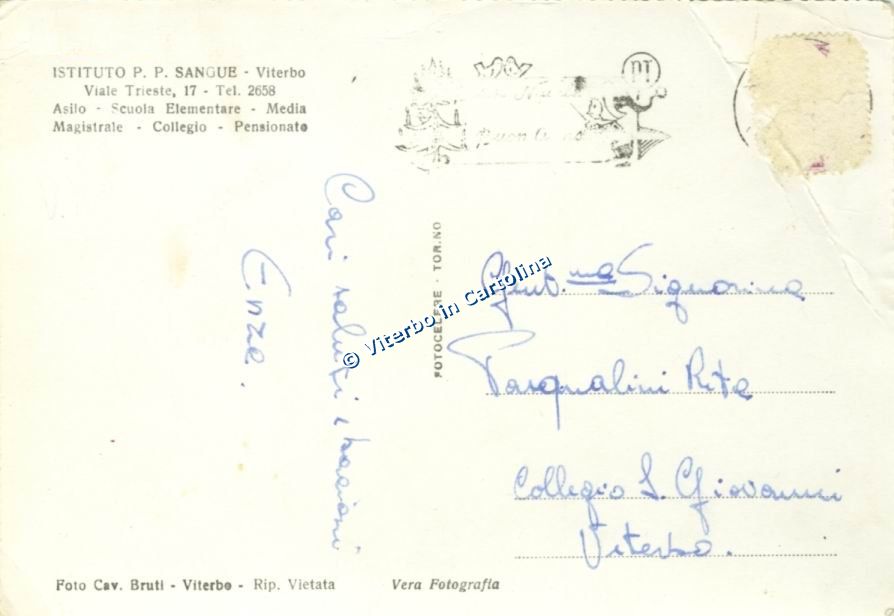 ISTITUTO P. P. SANGUE - Viterbo
Viale Trieste, 17 - Tel. 2658
Asilo - Scuola Elementare - Media
Magistrale - Collegio - Pensionato
PT
Buon
Cari saluti e bacioni
Enza.
FOTOCELERE - TORINO
© Viterbo in Cartolina
Gent.ma Signorina
Pasqualini Rita
Collegio S. Giovanni
Viterbo.
Foto Cav. Bruti - Viterbo - Rip. Vietata
Vera Fotografia